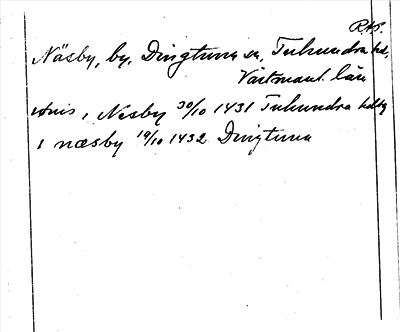 RAP.
Näsby, by, Dingtuna sn, Tuhundra hd,
Västmanl. län
i Nesby 30/10 1431 Tuhundra hdbg
i næsby 19/10 1432 Dingtuna